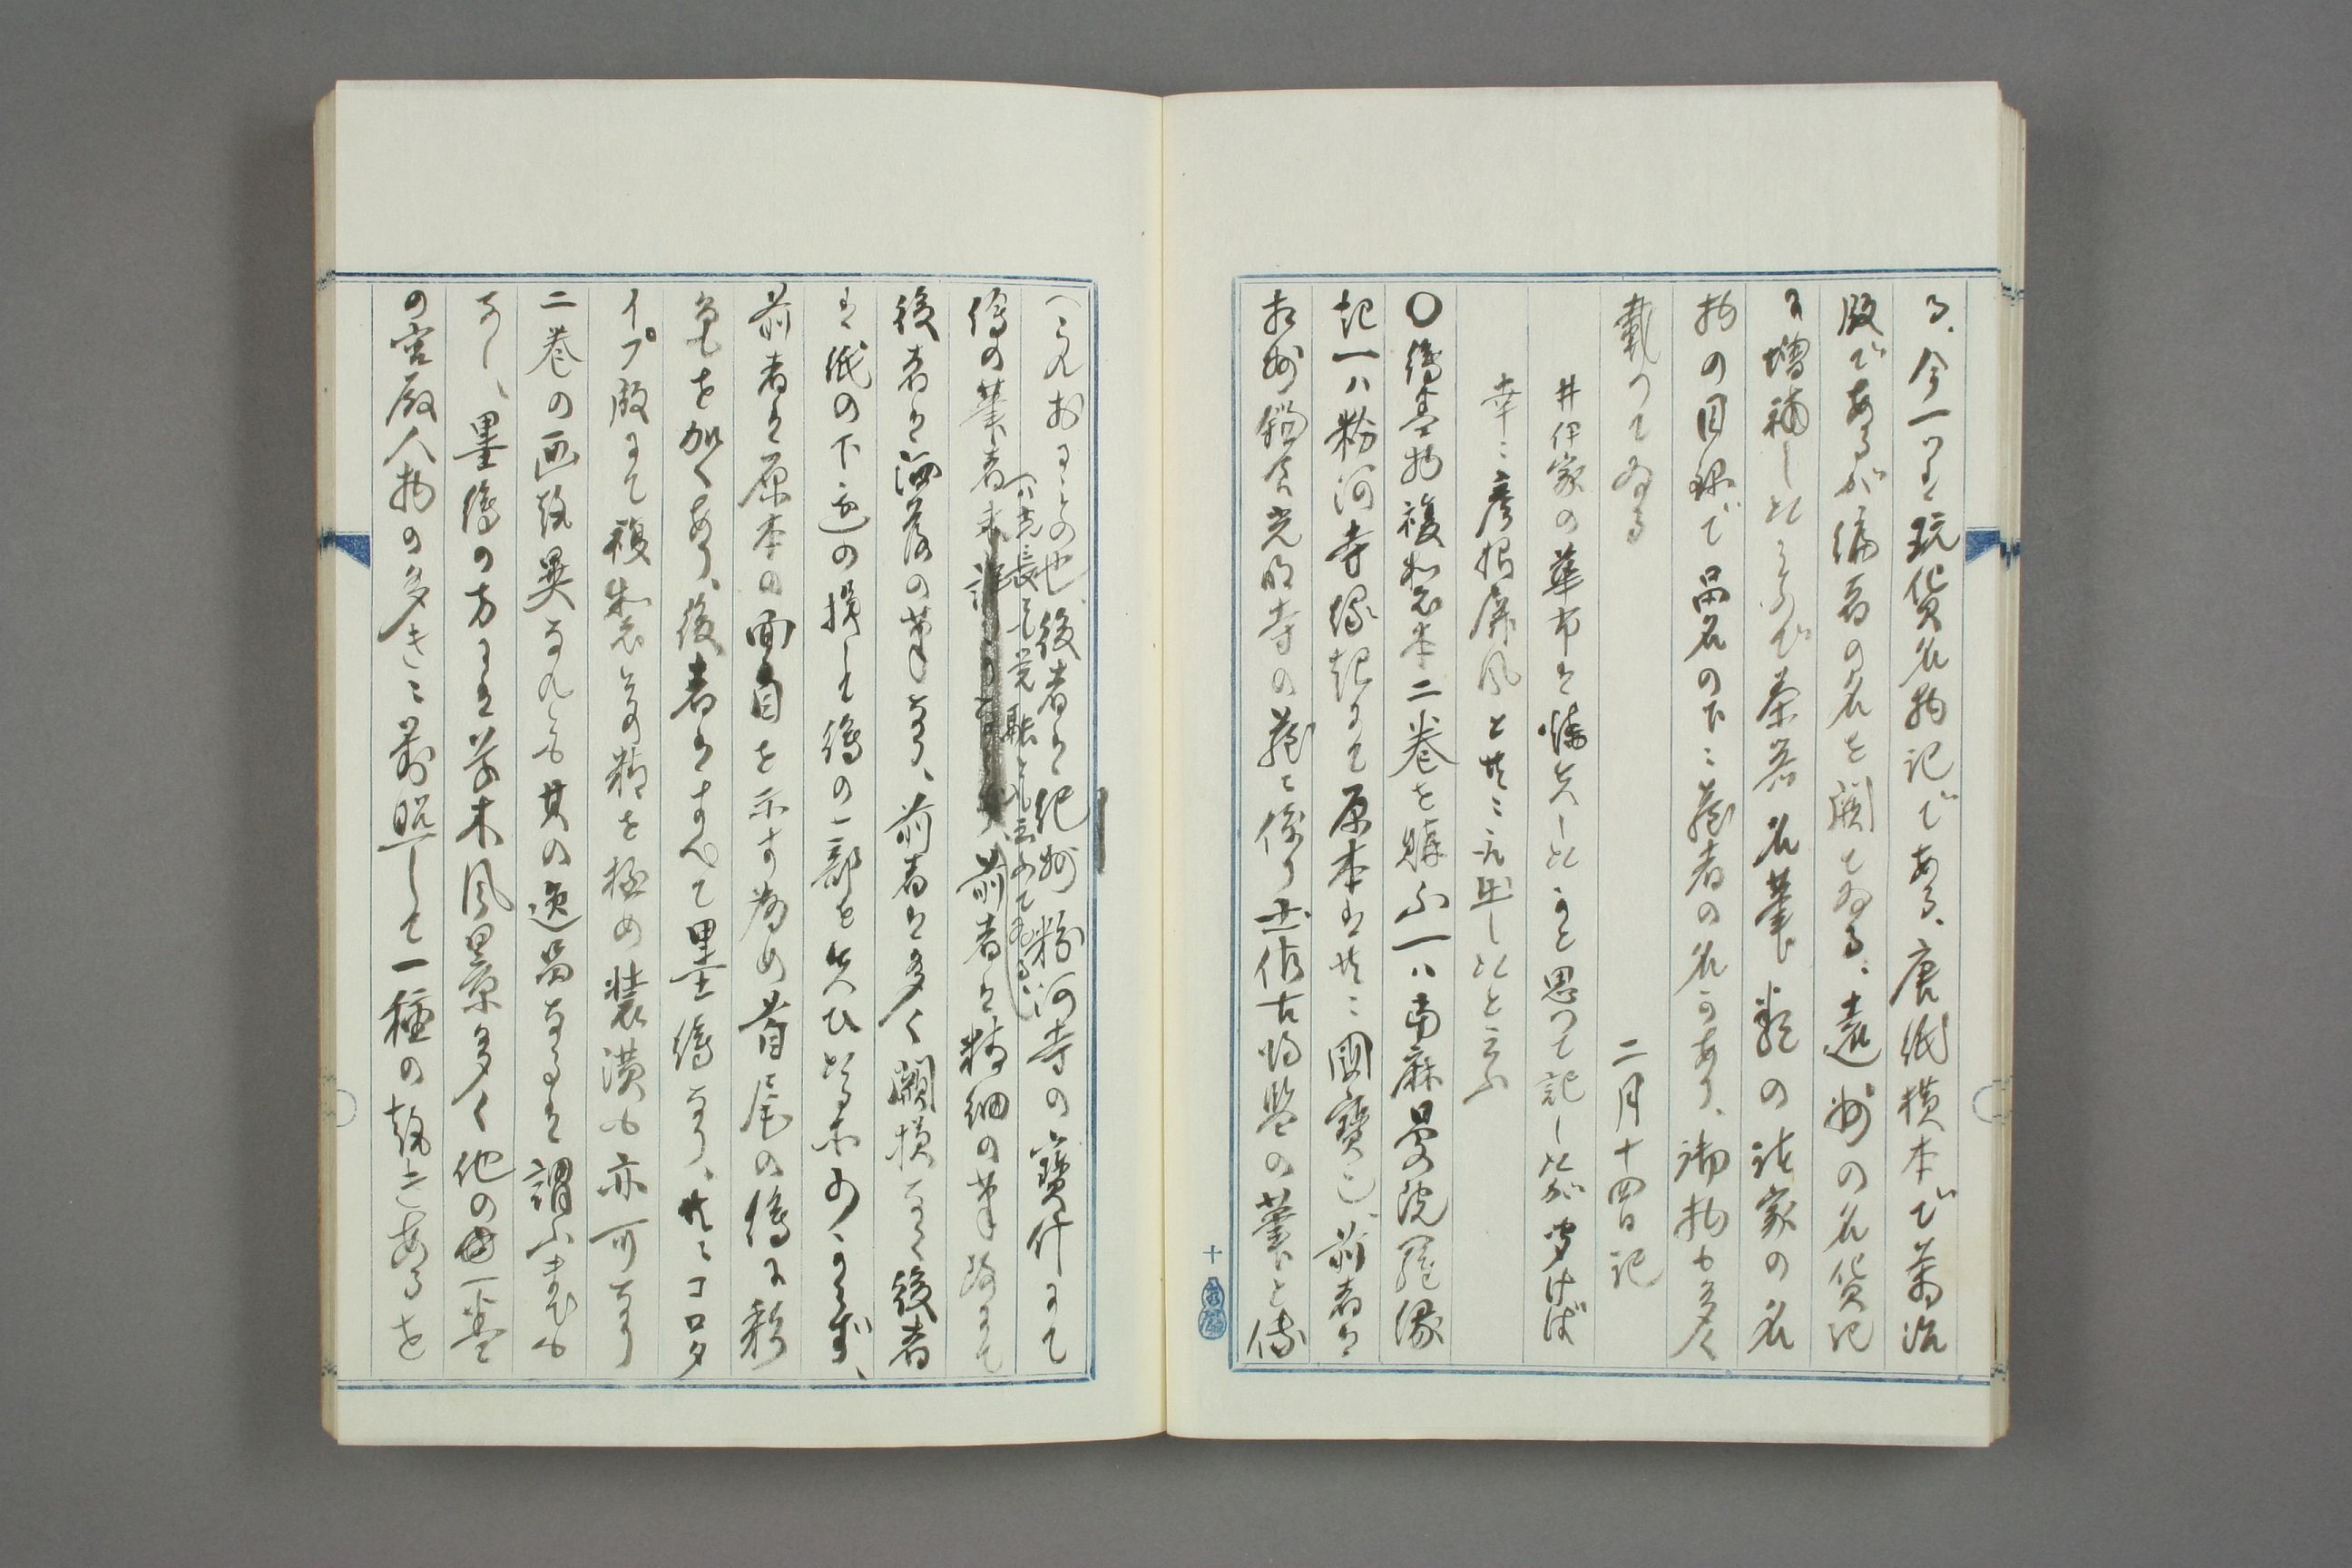 る、今一つは玩貨名物記である、唐紙横本で萬治
版であるが編者の名を闕てゐる、遠州の名貨記
に増補したもので茶器名葉類の諸家の名
物の目録で品名の下に蔵者の名があり、御物も多く
載つてゐる
二月十四日記
井伊家の華布は焼失したかと思つて記したが聞けば
幸に彦根屏風と共に取出したと云ふ
〇繪巻物複製本二巻を購ふ一ハ當麻曼陀羅縁
起一ハ粉河寺縁起にて原本は共に國寶也、前者は
相州鎌倉光明寺の蔵に係り土佐古将監の筆と傳
へられおるもの也、後者は紀州粉河寺の寶什にて
(八光長とも覚融とも云はれてゐる)
繪の筆者 前者は精細の筆致にて
後者は洒落の筆なり、前者は多く闕損なく後者
は紙の下辺の損し繪の一部を失ひたる所少からず、
前者は原本の面目を示す為め首尾の繪に彩
色を加へあり、後者はすべて墨繪なり、共にコロタ
イプ版にて複製頗る精を極め装潢も亦可なり
二巻の画致異なれども其の逸品なるは謂ふまでも
なし、墨繪の方には草木風景多く他の一巻
の宮殿人物の多きに對照して一種の趣きあるを
十